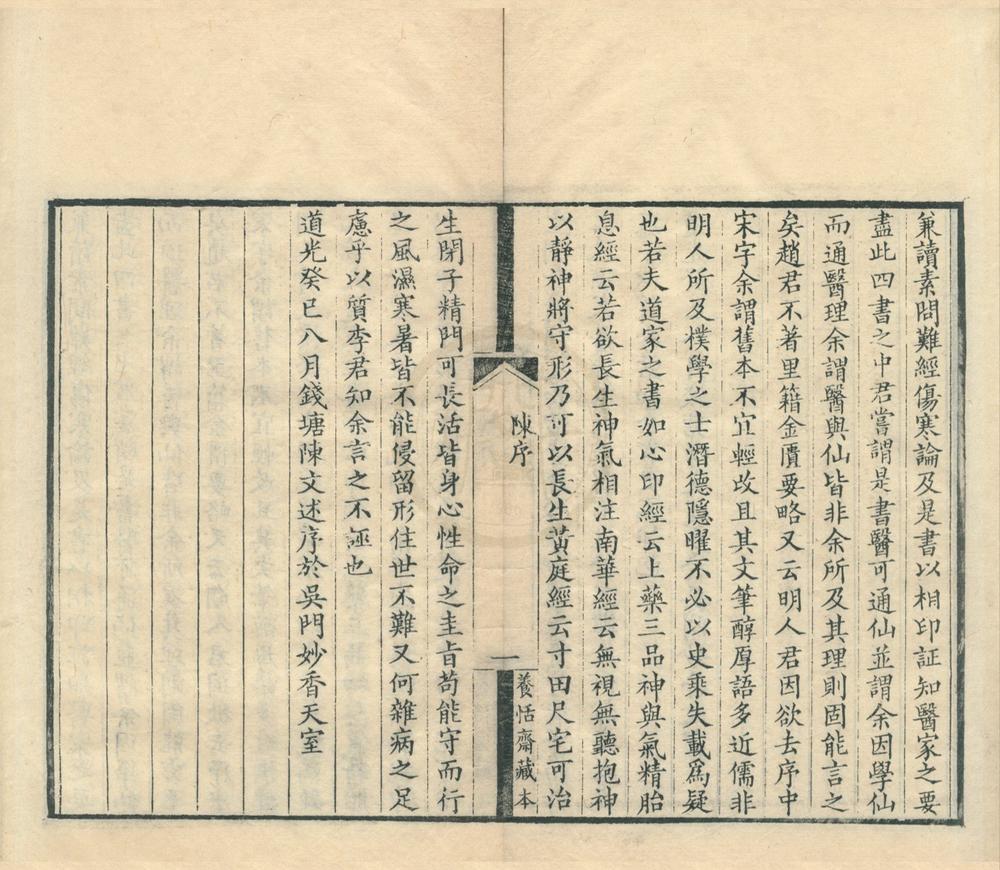 兼讀素問難經傷寒論及是書以相印証知醫家之要
盡此四書之中君嘗謂是書醫可通仙並謂余因學仙
而通醫理余謂醫與仙皆非余所及其理則固能言之
矣趙君不著里籍金匱要略又云明人君因欲去序中
宋字余謂舊本不宜輕改且其文筆醇厚語多近儒非
明人所及樸學之士潛德隱曜不必以史乘失載爲疑
也若夫道家之書如心印經云上藥三品神與氣精胎
息經云若欲長生神氣相注南華經云無視無聽抱神
以靜神將守形乃可以長生黃庭經云寸田尺宅可治
陳序
一
養恬齋藏本
生閉子精門可長活皆身心性命之圭旨苟能守而行
之風濕寒暑皆不能侵留形住世不難又何雜病之足
慮乎以質李君知余言之不誣也
道光癸巳八月錢塘陳文述序於吳門妙香天室